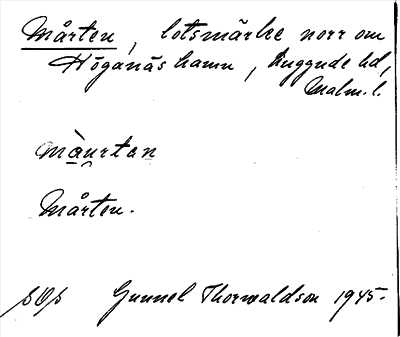 Mårten, lotsmärke norr om
Höganäs hamn, Luggude hd,
Malm. l.
màu̯rtan
Mårten.
sOs Gunnel Thorwaldson 1945.